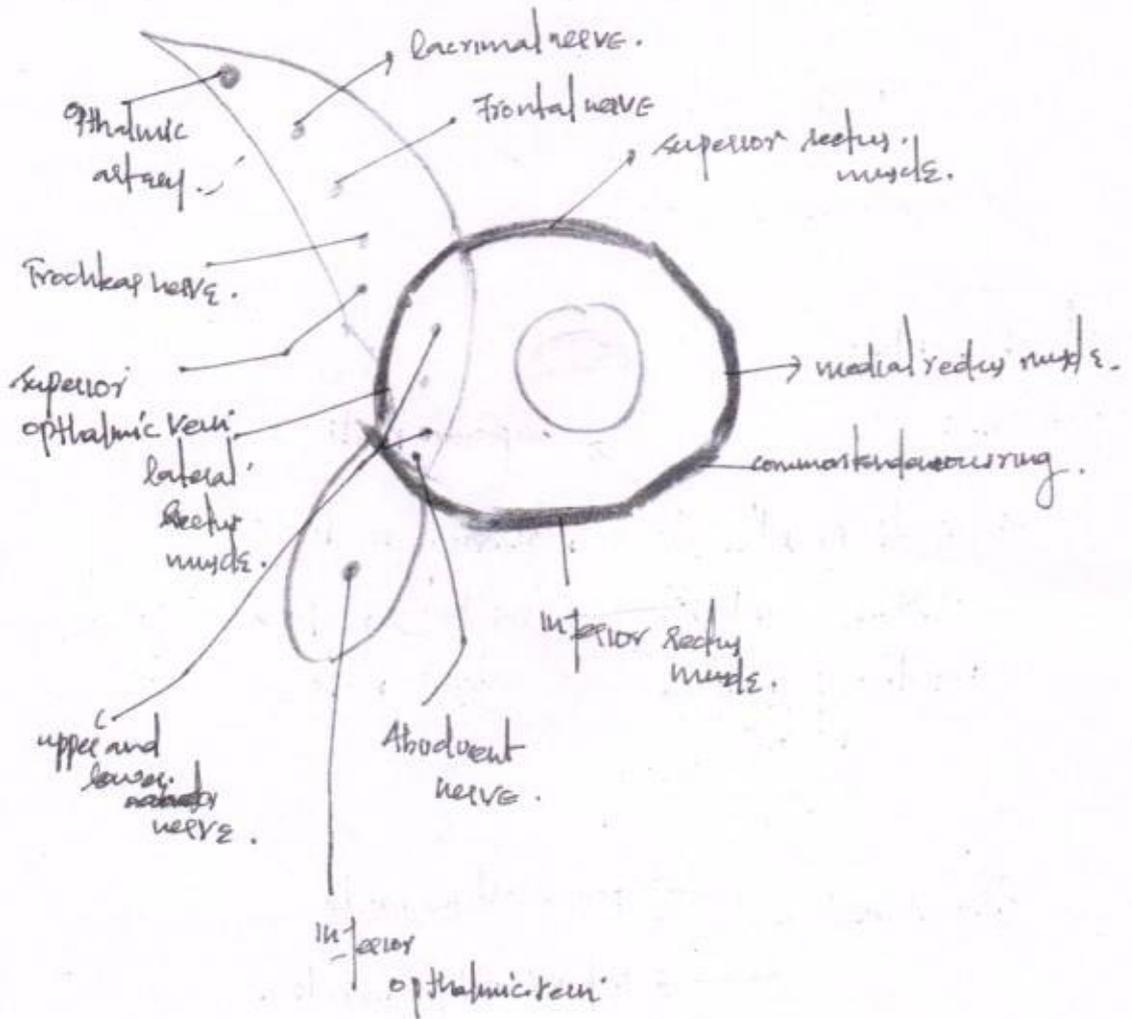 lacrimal nerve.
Frontal nerve
opthalmic
artery.
superior rectus
muscle.
Trochlear nerve.
superior
opthalmic vein
medial rectus muscle.
lateral
Rectus
muscle.
common tendenous ring.
Inferior Rectus
muscle.
upper and
lower
nerve.
Abducent
nerve.
Inferior
opthalmic vein